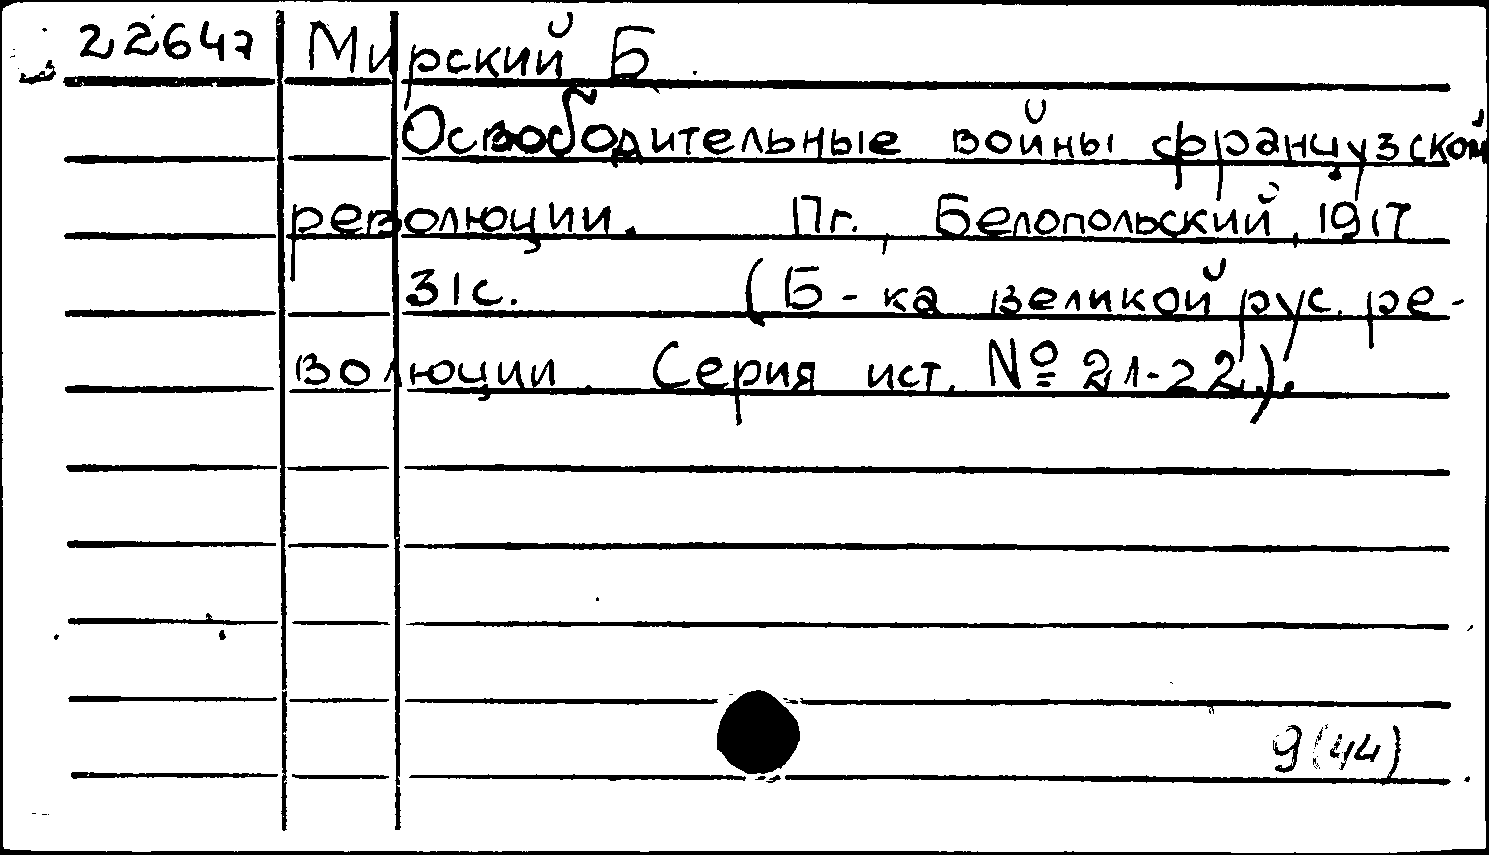 22647 Мирский Б.
Освободительные войны французской
революции. Пг., Белопольский, 1917
31с. (Б-ка великой рус. ре-
волюции. Серия ист. № 21-22).
9(44)